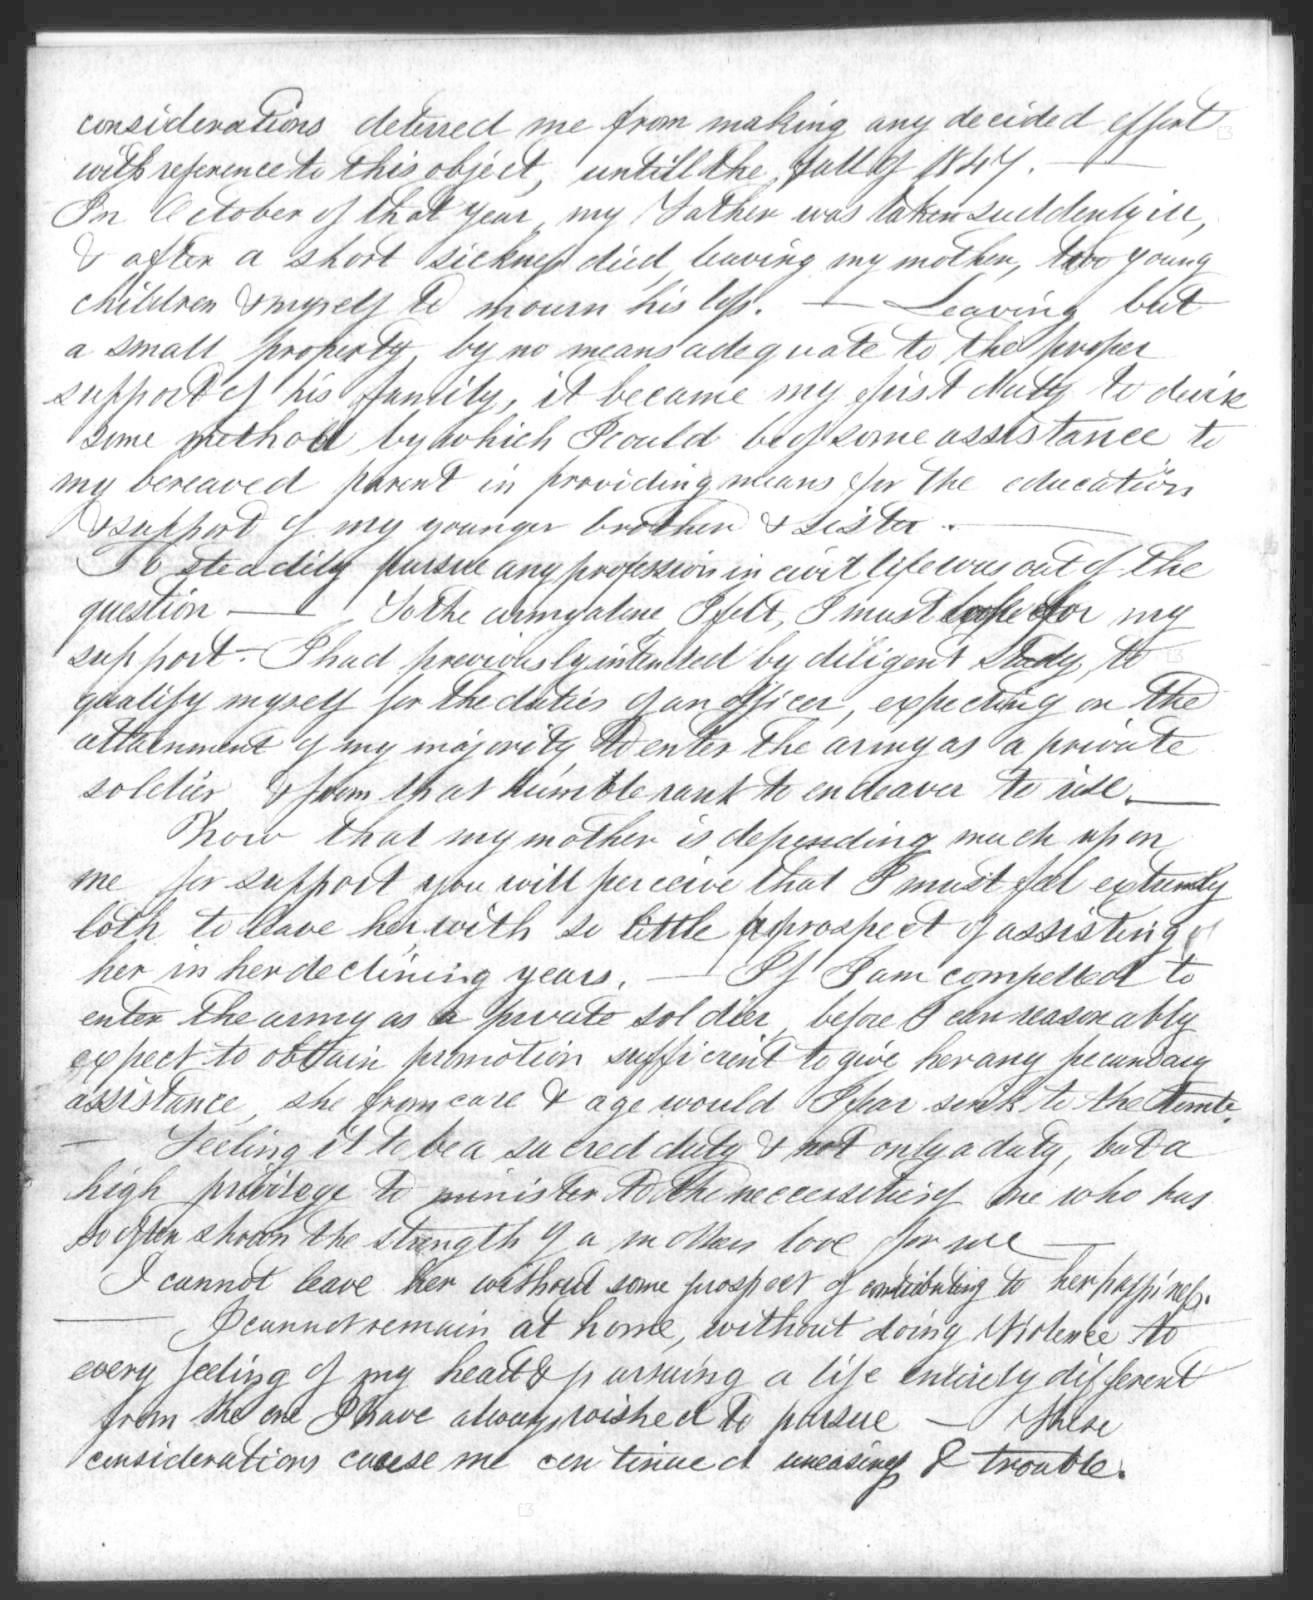 considerations deterred me from making any decided effort
with reference to this object, untill the fall of 1847. —
In October of that year, my Father was taken suddenly ill,
& after a short sickness died, leaving my mother, two young
children & myself to mourn his loss. — Leaving but
a small property, by no means adequate to the proper
support of his family, it became my first duty to devise
some method by which I could be of some assistance to
my bereaved parent in providing means for the education
& support of my younger brother & sister. —
To steadily pursue any profession in civil life was out of the
question — To the army alone I felt, I must look for my
support. — I had previously intended by diligent study, to
qualify myself for the duties of an officer, expecting on the
attainment of my majority to enter the army as a private
soldier, & from that humble rank to endeaver to rise. —
Now that my mother is depending much upon
me for support you will perceive that I must feel extremely
loth to leave her with so little prospect of assisting
her in her declining years. — If I am compelled to
enter the army as a private soldier, before I can reasonably
expect to obtain promotion sufficient to give her any pecuniary
assistance, she from care & age would I fear sink to the tomb.
— Feeling it to be a sacred duty & not only a duty, but a
high privilege to minister to the neccessities of one who has
so often shown the strength of a mothers love for me —
I cannot leave her without some prospect of contributing to her happiness.
— I cannot remain at home, without doing violence to
every feeling of my heart & pursuing a life entirely different
from the one I have always wished to pursue — These
considerations cause me continued uneasiness & trouble.